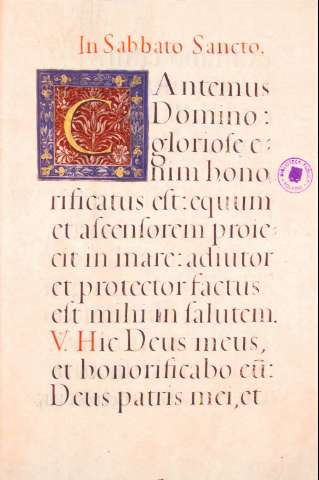 In Sabbato Sancto.
CAntemus
Domino:
gloriose e-
nim hono
rificatus est: equum
et ascensorem proie-
cit in mare: adiutor
et protector factus
est mihi in salutem.
V. Hic Deus meus,
et honorificabo eū:
Deus patris mei, et